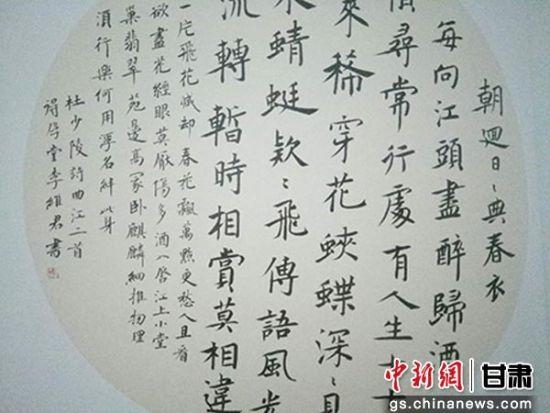 朝迴日〻典春衣
每向江頭盡醉歸酒
債尋常行處有人生七十
來稀穿花蛺蝶深〻見
水蜻蜓款〻飛傳語風光
流轉暫時相賞莫相違
一片飛花減却春花飄萬點更愁人且看
欲盡花經眼莫厭傷多酒入唇江上小堂
巢翡翠苑邊高冢臥麒麟細推物理
須行樂何用浮名絆此身
杜少陵詩曲江二首
堂李維君書
中新網 甘肃
gs.chinanews.com